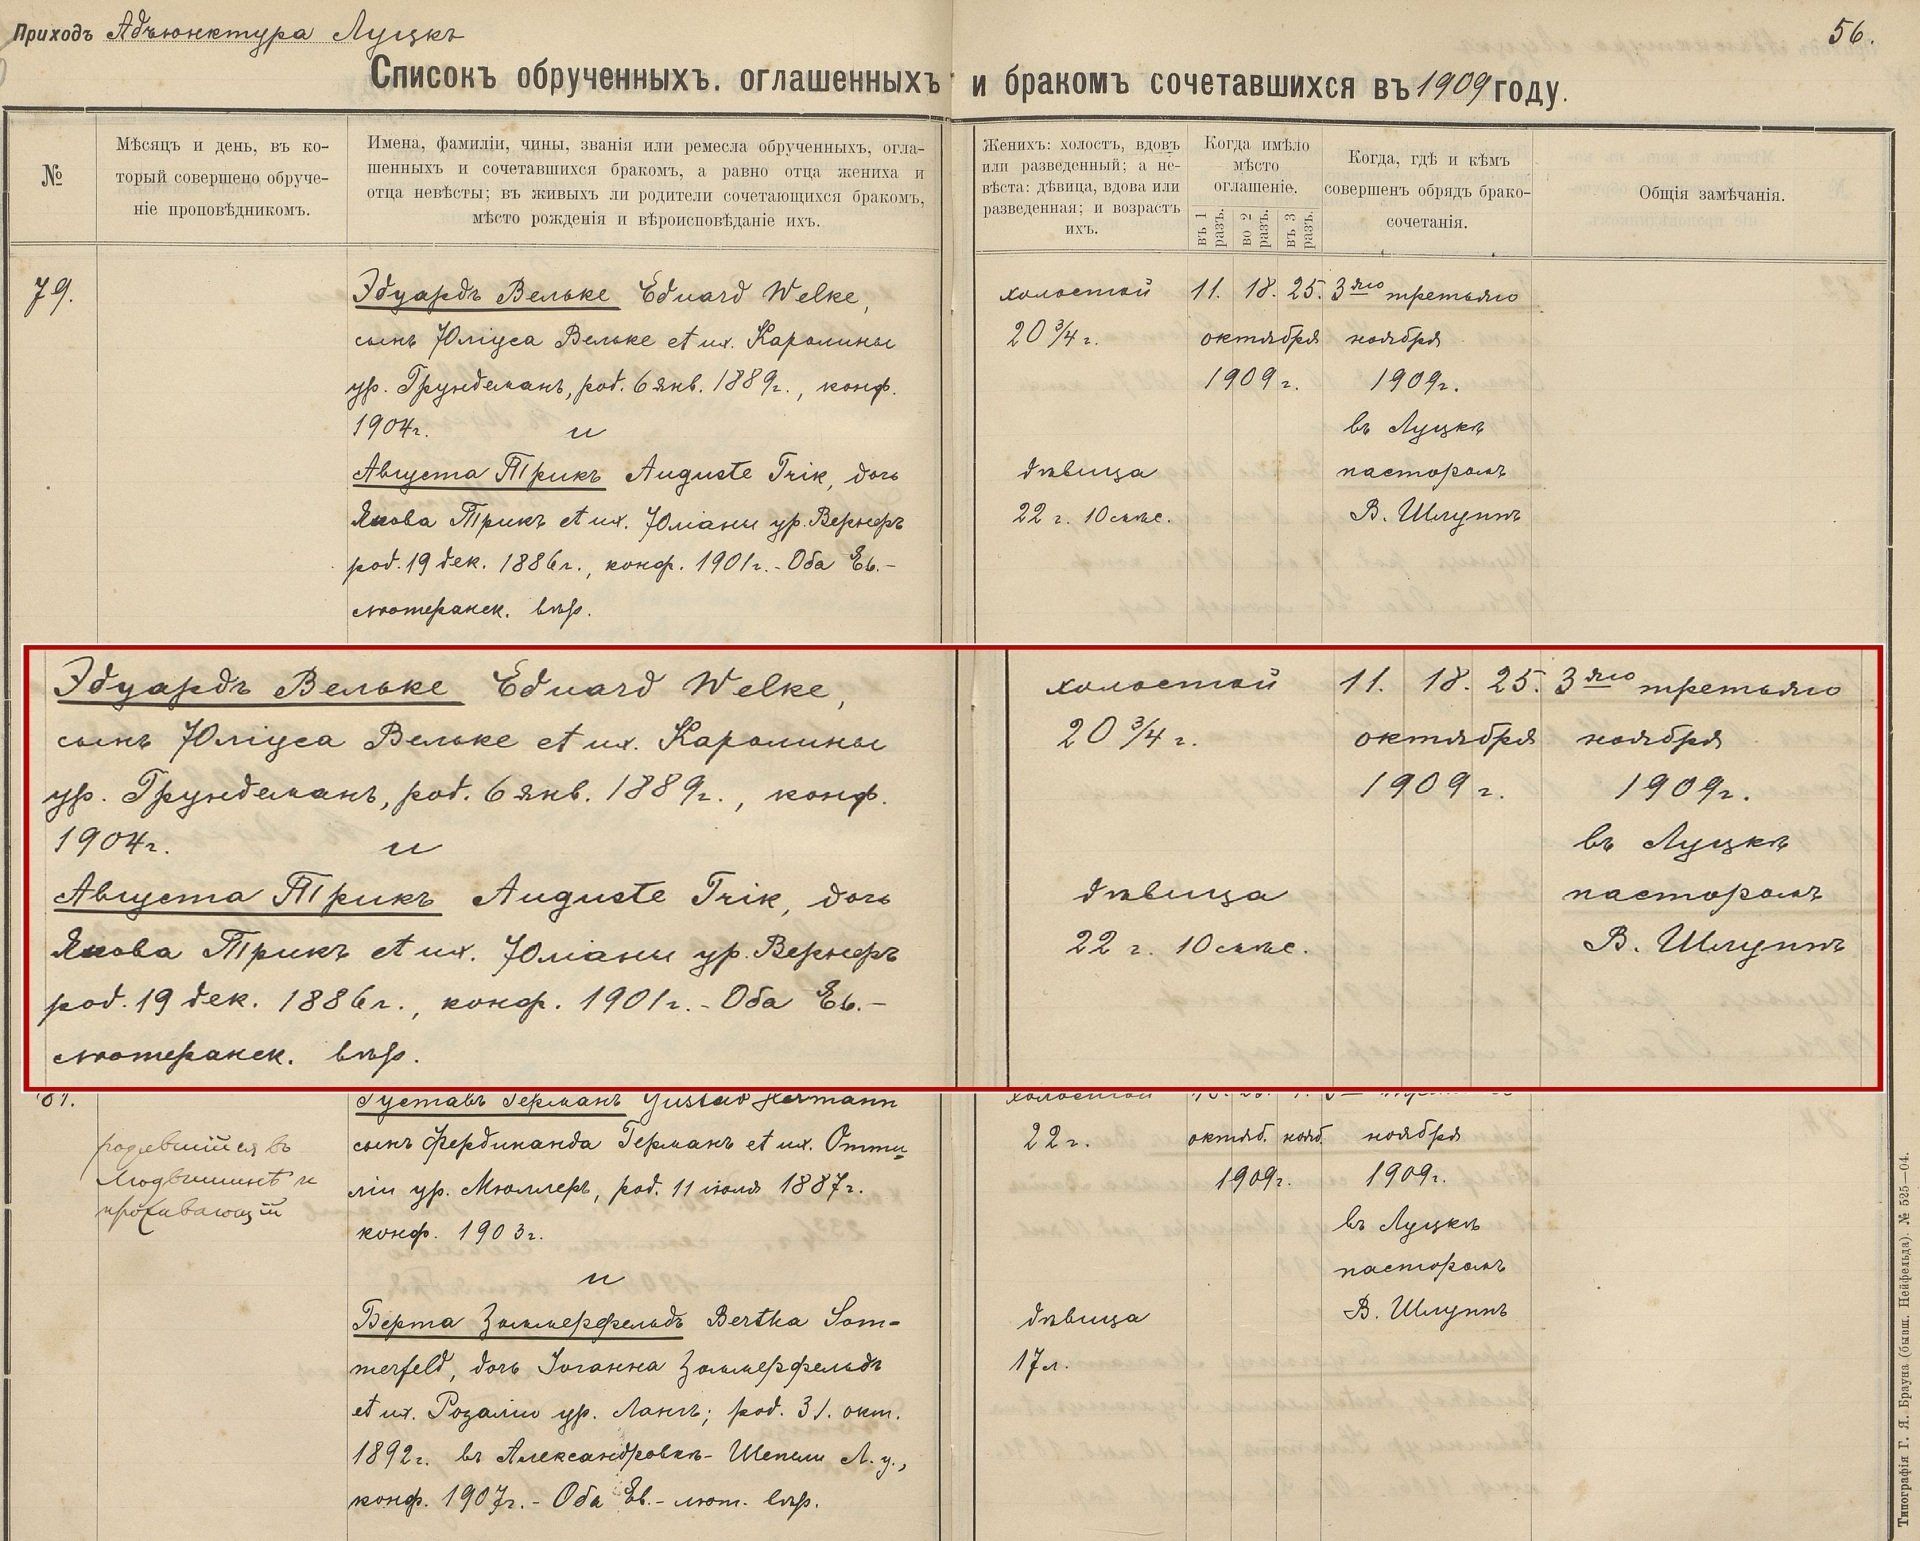 Приходъ Адъюнктура Луцкъ
56.
Списокъ обрученныхъ. оглашенныхъ и бракомъ сочетавшихся въ 1909 году.
№
Мѣсяцъ и день, въ ко-
торый совершено обруче-
ніе проповѣдникомъ.
Имена, фамиліи, чины, званія или ремесла обрученныхъ, огла-
шенныхъ и сочетавшихся бракомъ, а равно отца жениха и
отца невѣсты; въ живыхъ ли родители сочетающихся бракомъ,
мѣсто рожденія и вѣроисповѣданіе ихъ.
Женихъ: холостъ, вдовъ
или разведенный; а не-
вѣста: дѣвица, вдова или
разведенная; и возрастъ
ихъ.
Когда имѣло
мѣсто
оглашеніе.
въ 1
разъ.
во 2
разъ.
въ 3
разъ.
Когда, гдѣ и кѣмъ
совершенъ обрядъ брако-
сочетанія.
Общія замѣчанія.
79.
Эдуардъ Вельке Eduard Welke,
сынъ Юліуса Вельке et ux. Каролины
ур. Грундеманъ, род. 6 янв. 1889г., конф.
1904г. и
Августа Трикъ Auguste Trik, дочь
Якова Трикъ et ux. Юліаны ур. Вернеръ
род. 19 дек. 1886г., конф. 1901г. - Оба Ев.-
лютеранск. вѣр.
холостой
20 3/4 г.
дѣвица
22 г. 10 мѣс.
11. 18. 25.
октября
1909 г.
3яго третьяго
ноября
1909г.
въ Луцкѣ
пасторомъ
В. Шлуппъ
Эдуардъ Вельке Eduard Welke,
сынъ Юліуса Вельке et ux. Каролины
ур. Грундеманъ, род. 6 янв. 1889г., конф.
1904г. и
Августа Трикъ Auguste Trik, дочь
Якова Трикъ et ux. Юліаны ур. Вернеръ
род. 19 дек. 1886г., конф. 1901г. - Оба Ев.-
лютеранск. вѣр.
холостой
20 3/4 г.
дѣвица
22 г. 10 мѣс.
11. 18. 25.
октября
1909 г.
3яго третьяго
ноября
1909г.
въ Луцкѣ
пасторомъ
В. Шлуппъ
81.
родившійся въ
Людвишинѣ и
проживающій
Густавъ Германъ Gustav Hermann
сынъ Фердинанда Германъ et ux. Отти-
ліи ур. Мюллеръ, род. 11 іюля 1887г.
конф. 1903г.
и
Берта Зоммерфельдъ Bertha Som-
merfeld, дочь Іоганна Зоммерфельдъ
et ux. Розаліи ур. Лангъ; род. 31. окт.
1892г. въ Александровкѣ-Шепели Л. у.,
конф. 1907г. - Оба Ев.-лют. вѣр.
холостой
22 г.
дѣвица
17 л.
октяб. нояб.
1909г.
ноября
1909г.
въ Луцкѣ
пасторомъ
В. Шлуппъ
Типографія Г. Я. Брауна (бывш. Нейфельда). № 525—04.